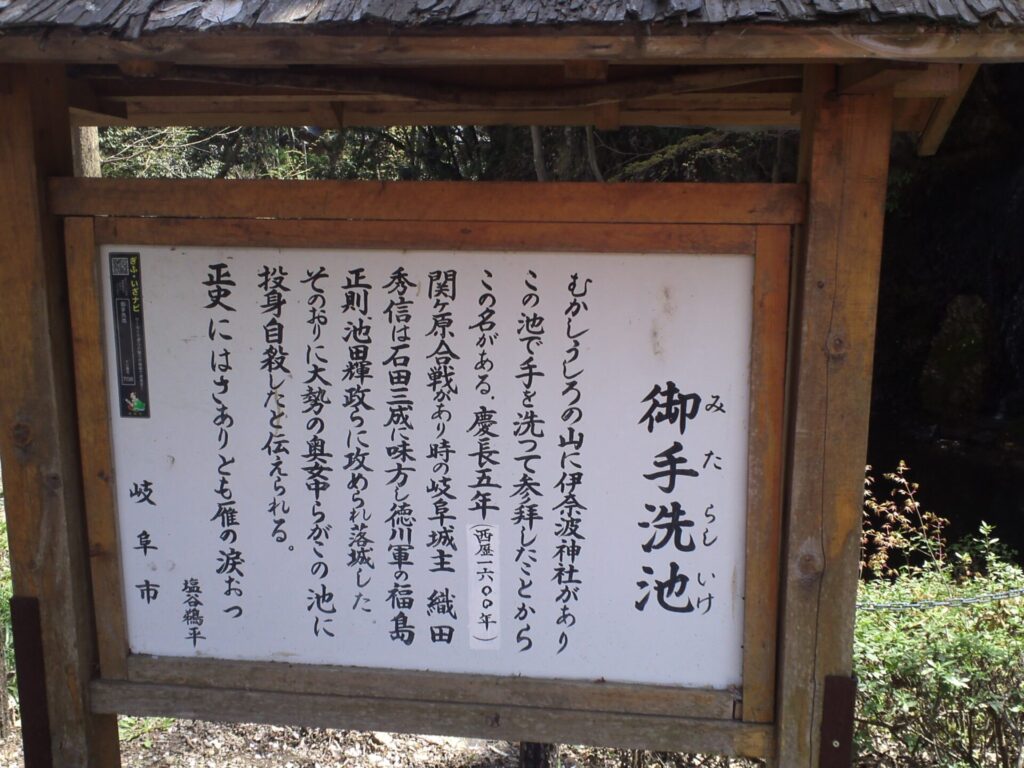 御手洗池
みたらしいけ
むかしうしろの山に伊奈波神社があり
この池で手を洗って参拝したことから
この名がある。慶長五年(西暦一六〇〇年)
関ヶ原合戦があり時の岐阜城主 織田
秀信は石田三成に味方し徳川軍の福島
正則池田輝政らに攻められ落城した
そのおりに大勢の奥女中らがこの池に
投身自殺したと伝えられる。
正史にはさありとも雁の涙おつ
塩谷鵜平
岐阜市
ぎふ・いざナビ